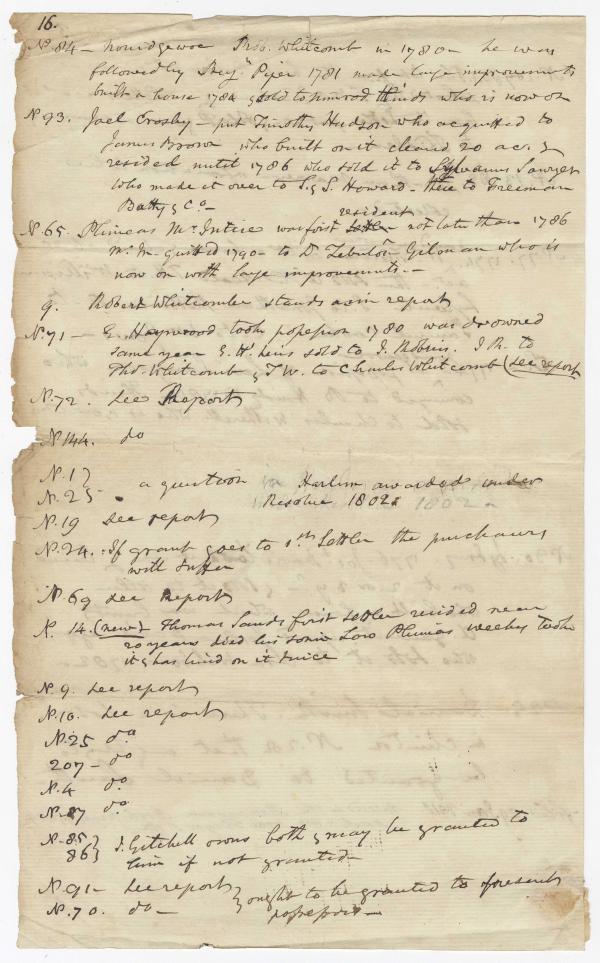 16.
N.84 – Norridgewoc Tho. Whitcomb in 1780 – he was
followed by Benjn Piper 1781 made large improvements
built a house 1784 & sold to Nimrod Hinds who is now on
N.93. Joel Crosby – put Timothy Hudson who acquitted to
James Brown who built on it cleared 20 acs. &
resided until 1786 who sold it to Sylvanus Sawyer
who made it over to S. & S. Howard – these to Freeman
Batty & Co –
resident
N.65. Phineas McIntire was first settler not later than 1786
Mc In. quitted 1790 – to Dr Zebulon Gilman who is
now on with large improvements. –
9. Robert Whitcomb stands as in report
N.71 – E. Haywood took possession 1780 was drowned
same year E. H. heirs sold to J. Robins. J. R. to
Tho. Whitcomb & T W. to Charles Whitcomb (see report
N.72. See Report
N.144. do
N.17
N.25 a question in Harlem awarded under
Resolve 1802
N.19 see report
N.24. If grant goes to 1st Settler the purchasers
will suffer
N.69 see Report
N. 14. (new) – Thomas Sands first settler resided near
20 years died his son in Law Phinias Weekes took
it & has lived on it since
N.9. see report
N.10. see report
N.25 do
207 – do
N.4 do
N.87 do
N.85}
86} J. Gitchell owns both & may be granted to
him if not granted –
N.91 – see report } ought to be granted to present
N.70. do – possessor –